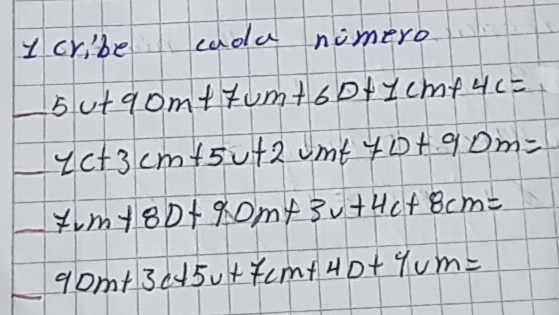 1 cribe cada número
_ 5u+9Dm+7um+6D+1cm+4c=
_ 1c+3cm+5u+2um+7D+9Dm=
_ 7um+8D+9Dm+3u+4c+8cm=
_ 9Dm+3c+5u+7cm+4D+9um=